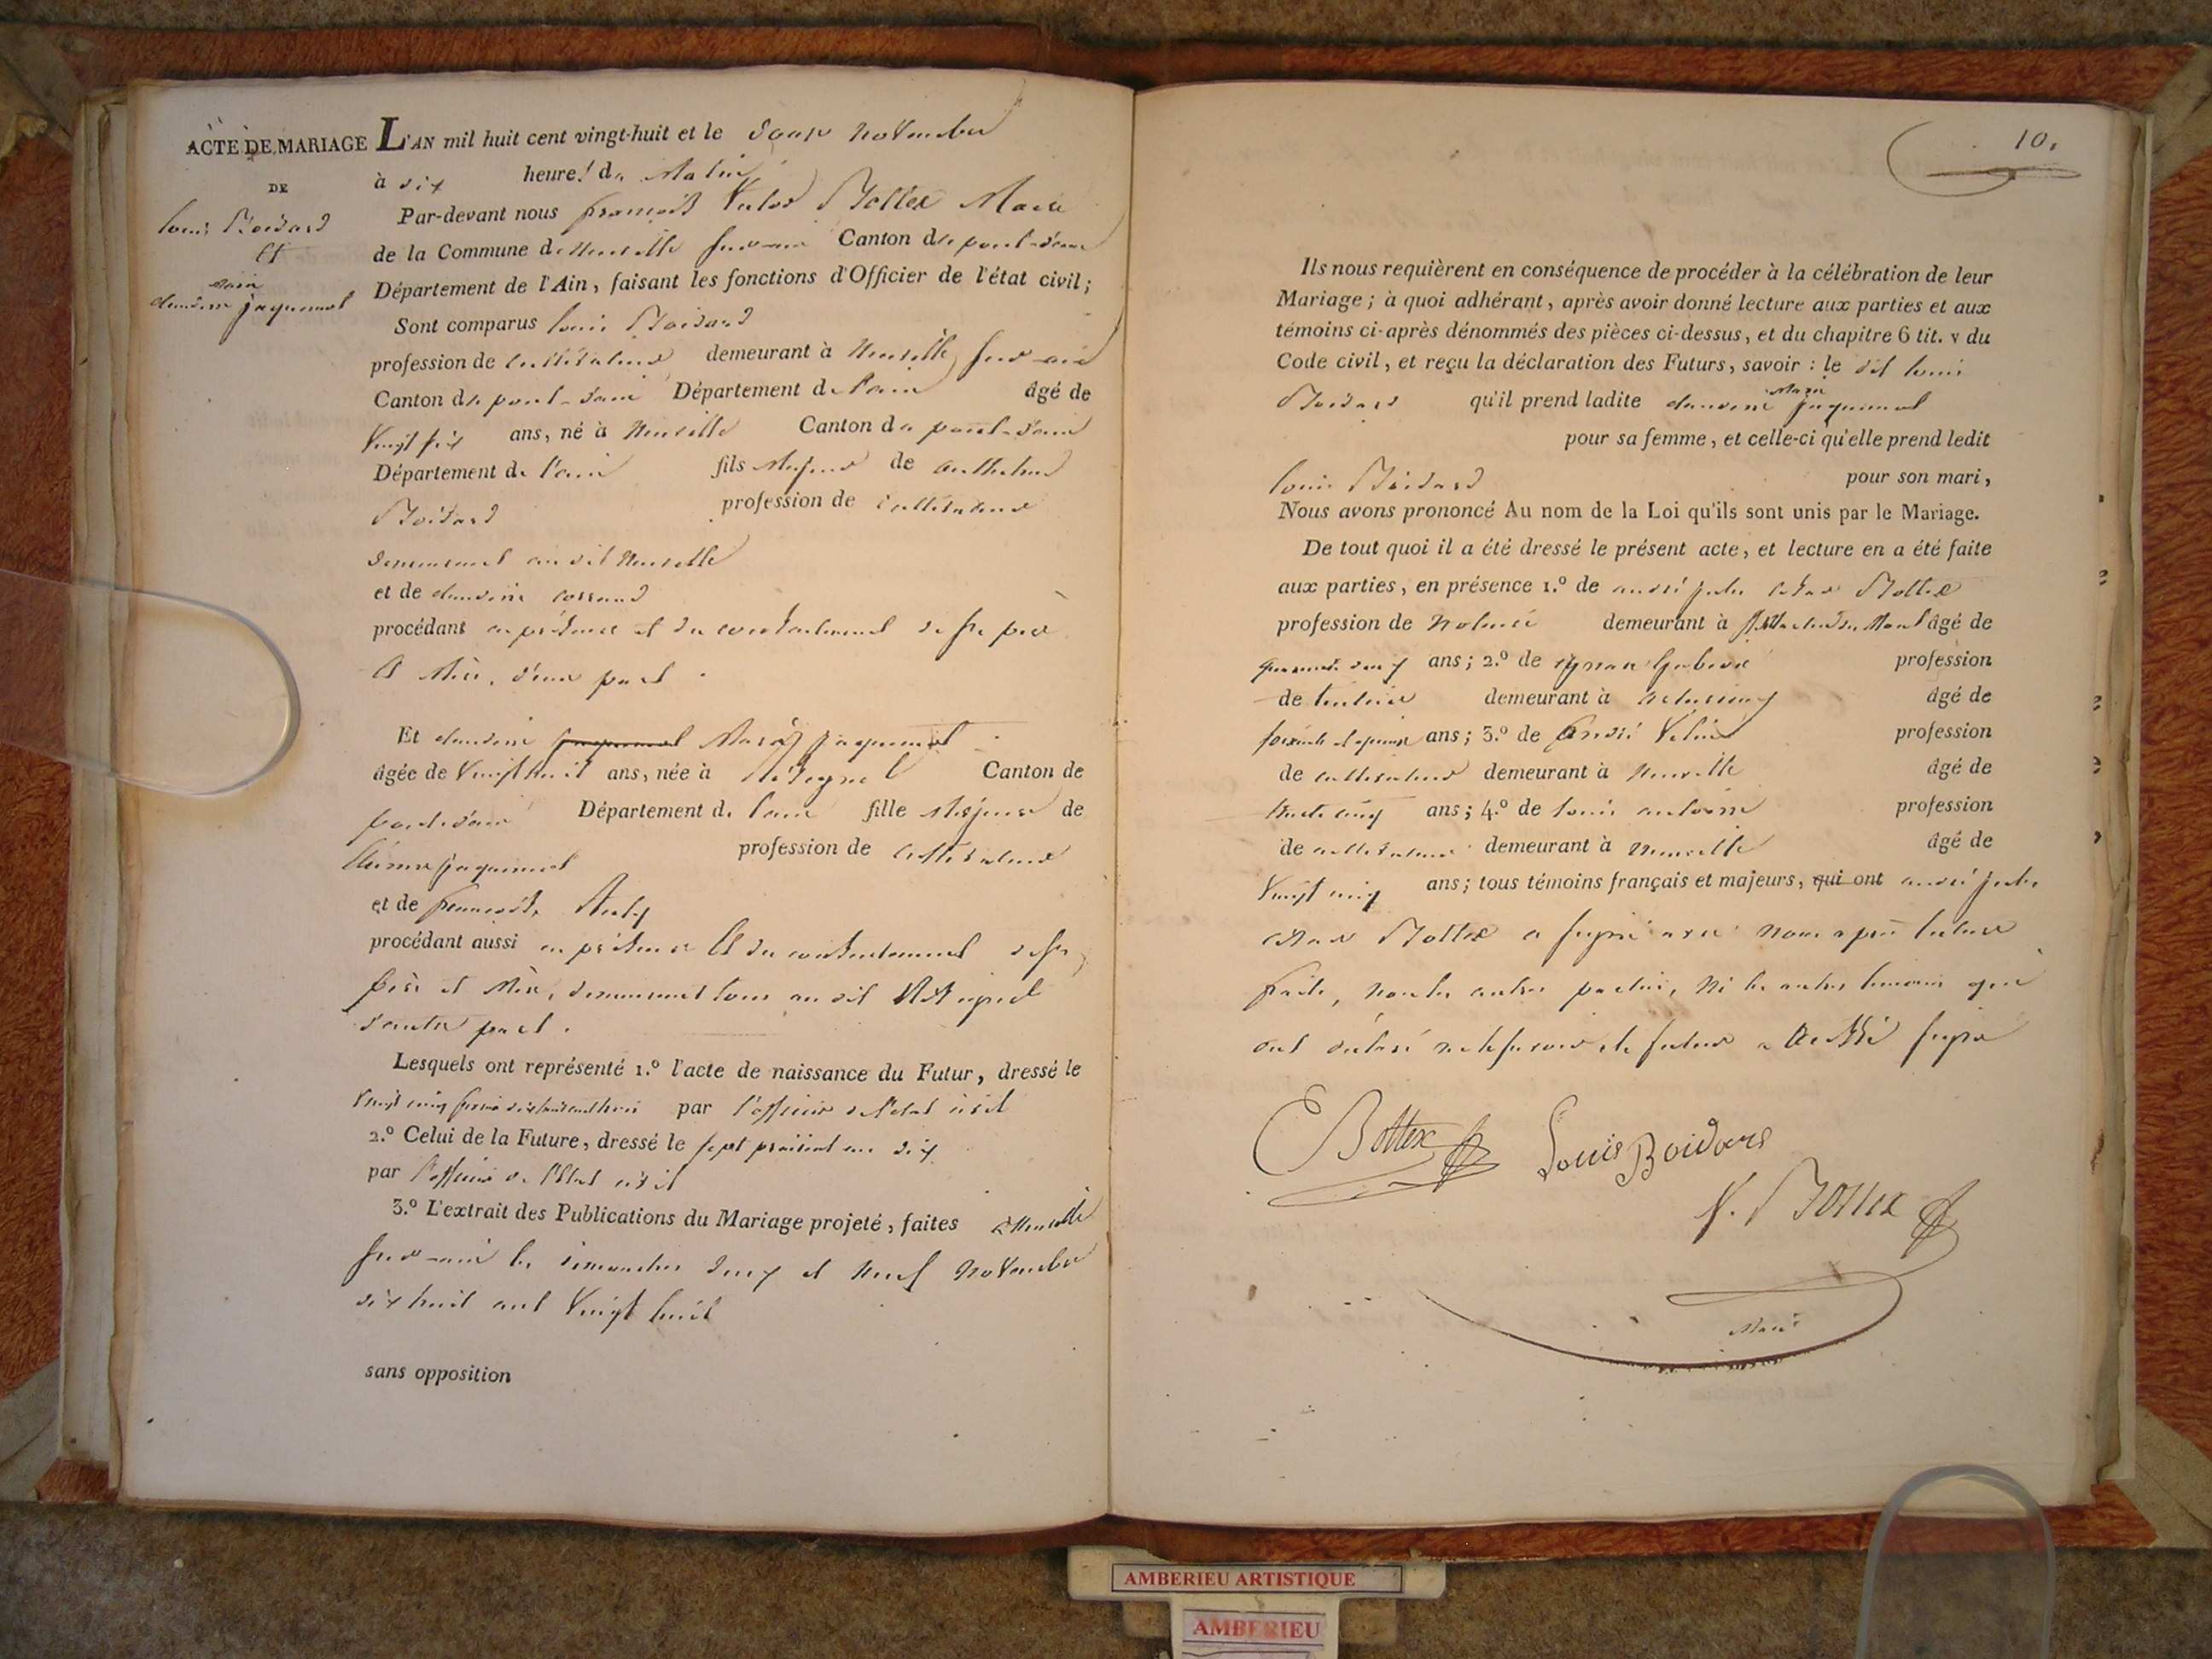 ACTE DE MARIAGE
DE
louis Boidard
Et
marie
claudine jaquemet
L'AN mil huit cent vingt-huit et le douze novembre
à dix heures du matin
Par-devant nous françois victor Bottex Maire
de la Commune de neuville sur-ain Canton de pont-d'ain
Département de l'Ain, faisant les fonctions d'Officier de l'état civil;
Sont comparus louis Boidard
profession de cultivateur demeurant à neuville sur-ain
Canton de pont-d'ain Département de l'ain âgé de
vingt six ans, né à neuville Canton de pont-d'ain
Département de l'ain fils majeur de anthelme
Boidard profession de cultivateur
demeurant au dit neuville
et de claudine
procédant en présence et du consentement de ses père
et mère, d'une part.
Et claudine jaquemet Marie jaquemet
âgée de vingt huit ans, née à Canton de
pont d'ain Département de l'ain fille majeure de
jaquemet profession de cultivateur
et de françoise
procédant aussi en présence et du consentement de ses
père et mère, demeurant tous au dit
d'autre part.
Lesquels ont représenté 1.º l'acte de naissance du Futur, dressé le
vingt cinq par l'officier de l'état civil
2.º Celui de la Future, dressé le sept prairial an dix
par l'officier de l'état civil
3.º L'extrait des Publications du Mariage projeté, faites à neuville
sur-ain les dimanches deux et neuf novembre
dix huit cent vingt huit
sans opposition
10.
Ils nous requièrent en conséquence de procéder à la célébration de leur
Mariage; à quoi adhérant, après avoir donné lecture aux parties et aux
témoins ci-après dénommés des pièces ci-dessus, et du chapitre 6 tit. v du
Code civil, et reçu la déclaration des Futurs, savoir: le dit louis
Boidard qu'il prend ladite claudine marie jaquemet
pour sa femme, et celle-ci qu'elle prend ledit
louis Boidard pour son mari,
Nous avons prononcé Au nom de la Loi qu'ils sont unis par le Mariage.
De tout quoi il a été dressé le présent acte, et lecture en a été faite
aux parties, en présence 1.º de andré jules césar Bottex
profession de notaire demeurant à âgé de
quarante deux ans; 2.º de profession
de demeurant à âgé de
ans; 3.º de André profession
de cultivateur demeurant à neuville âgé de
trente cinq ans; 4.º de louis antoine profession
de cultivateur demeurant à neuville âgé de
vingt cinq ans; tous témoins français et majeurs, qui ont andré jules
césar Bottex a signé avec nous après lecture
faite, non les autres parties, ni les autres témoins qui
ont déclaré ne le savoir, le futur a aussi signé
C Bottex Louis Boidard
V. Bottex
Maire
AMBERIEU ARTISTIQUE
AMBERIEU